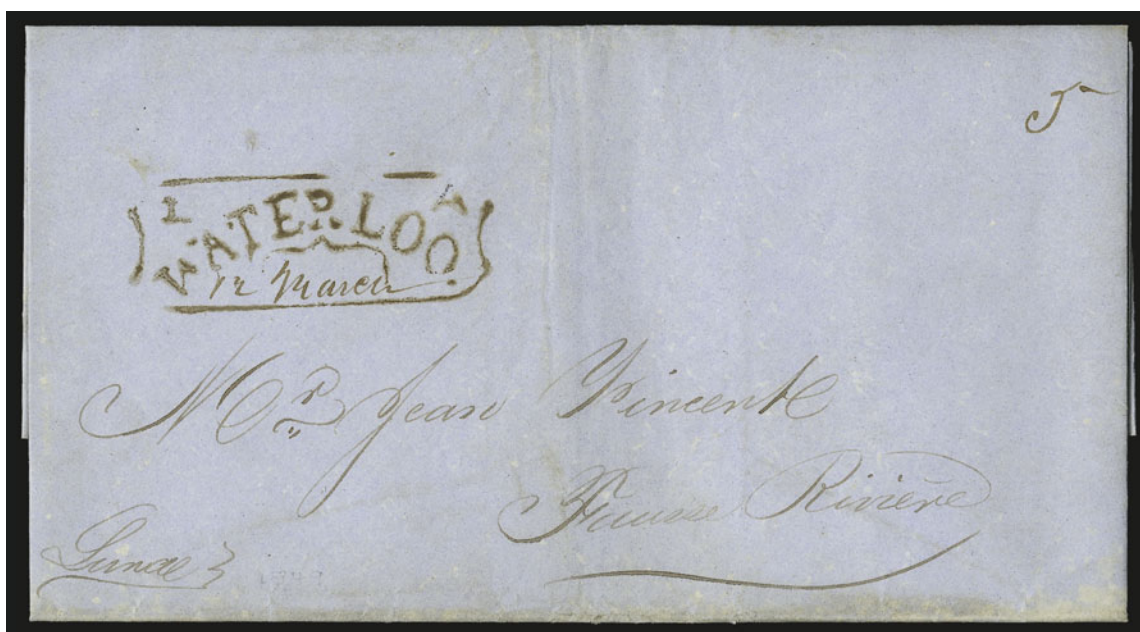 5
L A
WATERLOO.
12 March
Mr Jean Vincent
Fausse Rivière